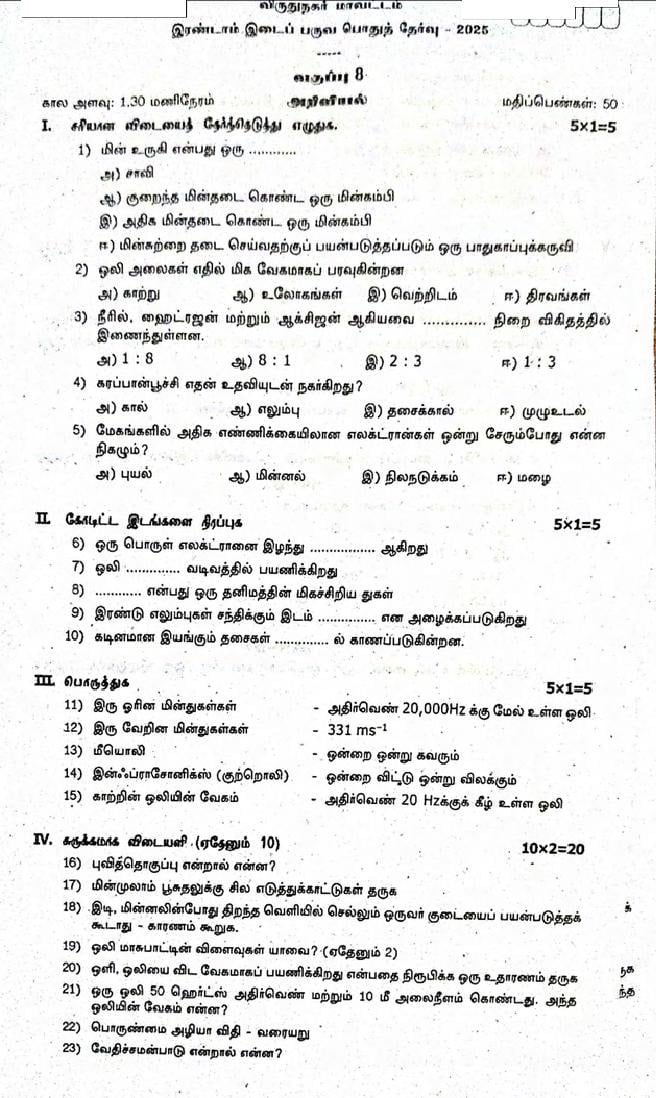 விருதுநகர் மாவட்டம்
இரண்டாம் இடைப் பருவ பொதுத் தேர்வு - 2025
வகுப்பு 8
கால அளவு: 1.30 மணிநேரம் அறிவியல் மதிப்பெண்கள்: 50
I. சரியான விடையைத் தேர்ந்தெடுத்து எழுதுக. 5×1=5
1) மின் உருகி என்பது ஒரு ............
அ) சாவி
ஆ) குறைந்த மின்தடை கொண்ட ஒரு மின்கம்பி
இ) அதிக மின்தடை கொண்ட ஒரு மின்கம்பி
ஈ) மின்சுற்றை தடை செய்வதற்குப் பயன்படுத்தப்படும் ஒரு பாதுகாப்புக்கருவி
2) ஒலி அலைகள் எதில் மிக வேகமாகப் பரவுகின்றன
அ) காற்று ஆ) உலோகங்கள் இ) வெற்றிடம் ஈ) திரவங்கள்
3) நீரில், ஹைட்ரஜன் மற்றும் ஆக்சிஜன் ஆகியவை .............. நிறை விகிதத்தில்
இணைந்துள்ளன.
அ) 1 : 8 ஆ) 8 : 1 இ) 2 : 3 ஈ) 1 : 3
4) கரப்பான்பூச்சி எதன் உதவியுடன் நகர்கிறது?
அ) கால் ஆ) எலும்பு இ) தசைக்கால் ஈ) முழுஉடல்
5) மேகங்களில் அதிக எண்ணிக்கையிலான எலக்ட்ரான்கள் ஒன்று சேரும்போது என்ன
நிகழும்?
அ) புயல் ஆ) மின்னல் இ) நிலநடுக்கம் ஈ) மழை
II. கோடிட்ட இடங்களை நிரப்புக 5×1=5
6) ஒரு பொருள் எலக்ட்ரானை இழந்து ................ ஆகிறது
7) ஒலி ............. வடிவத்தில் பயணிக்கிறது
8) ............ என்பது ஒரு தனிமத்தின் மிகச்சிறிய துகள்
9) இரண்டு எலும்புகள் சந்திக்கும் இடம் .............. என அழைக்கப்படுகிறது
10) கடினமான இயங்கும் தசைகள் .............. ல் காணப்படுகின்றன.
III. பொருத்துக 5×1=5
11) இரு ஓரின மின்துகள்கள் - அதிர்வெண் 20,000Hz க்கு மேல் உள்ள ஒலி
12) இரு வேறின மின்துகள்கள் - 331 ms⁻¹
13) மீயொலி - ஒன்றை ஒன்று கவரும்
14) இன்ஃப்ராசோனிக்ஸ் (குற்றொலி) - ஒன்றை விட்டு ஒன்று விலக்கும்
15) காற்றின் ஒலியின் வேகம் - அதிர்வெண் 20 Hzக்குக் கீழ் உள்ள ஒலி
IV. சுருக்கமாக விடையளி (ஏதேனும் 10) 10×2=20
16) புவித்தொகுப்பு என்றால் என்ன?
17) மின்முலாம் பூசுதலுக்கு சில எடுத்துக்காட்டுகள் தருக
18) இடி, மின்னலின்போது திறந்த வெளியில் செல்லும் ஒருவர் குடையைப் பயன்படுத்தக்
கூடாது - காரணம் கூறுக.
19) ஒலி மாசுபாட்டின் விளைவுகள் யாவை? (ஏதேனும் 2)
20) ஒளி, ஒலியை விட வேகமாகப் பயணிக்கிறது என்பதை நிரூபிக்க ஒரு உதாரணம் தருக
21) ஒரு ஒலி 50 ஹெர்ட்ஸ் அதிர்வெண் மற்றும் 10 மீ அலைநீளம் கொண்டது. அந்த
ஒலியின் வேகம் என்ன?
22) பொருண்மை அழியா விதி - வரையறு
23) வேதிச்சமன்பாடு என்றால் என்ன?